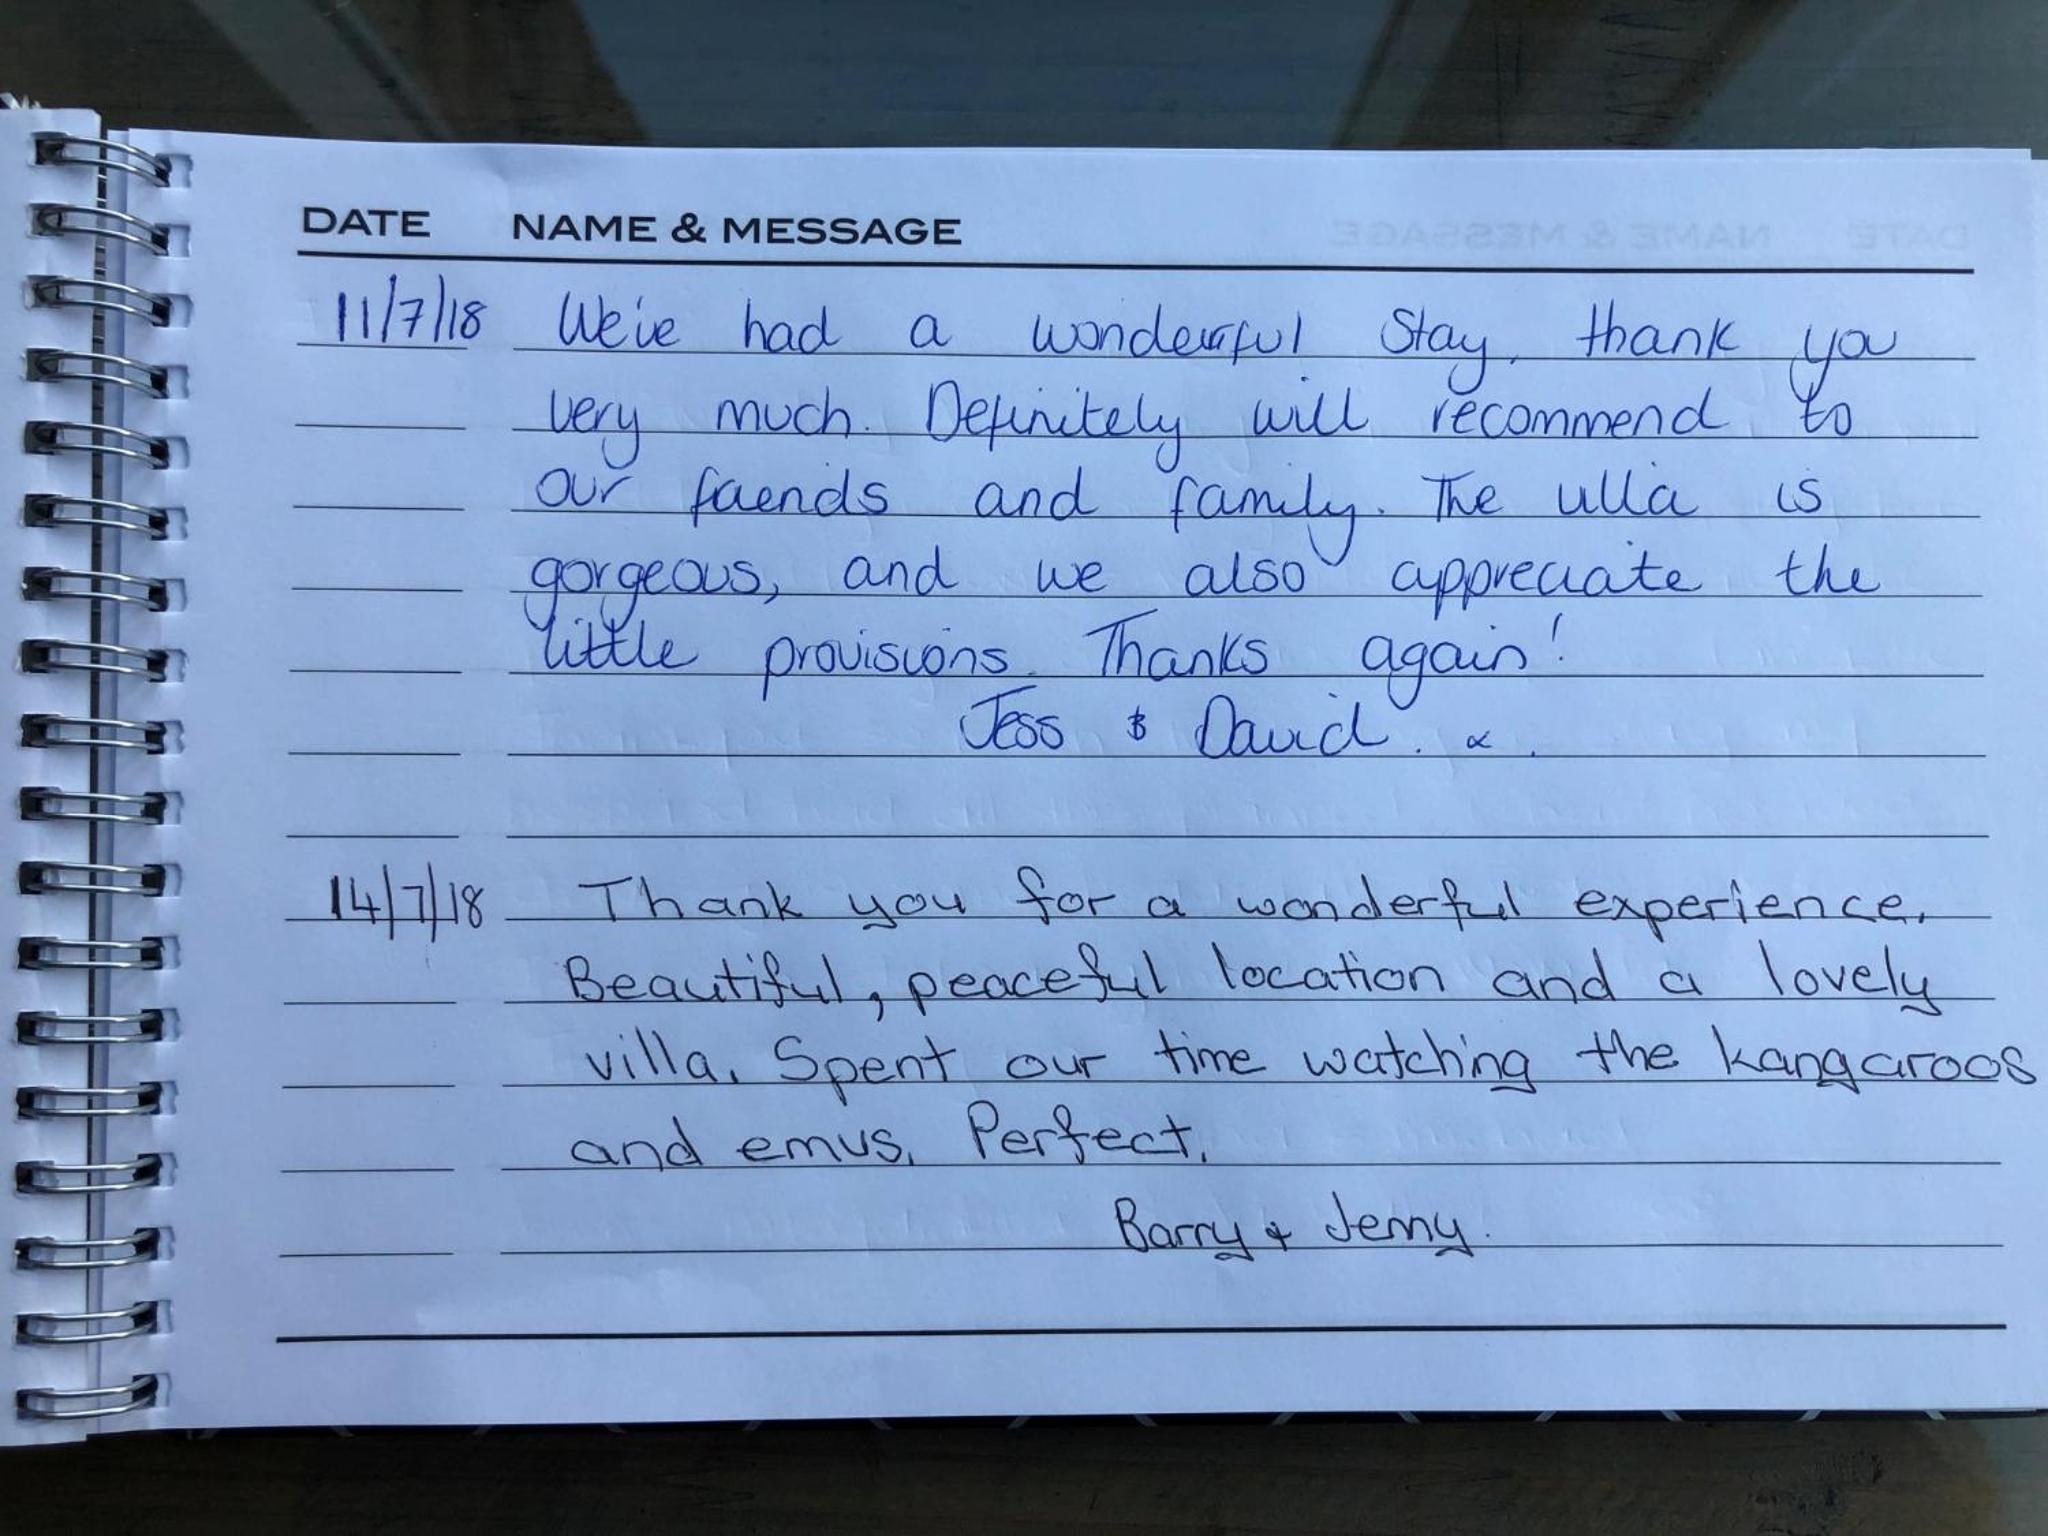 DATE NAME & MESSAGE
11/7/18 We've had a wonderful stay, thank you
very much. Definitely will recommend to
our friends and family. The villa is
gorgeous, and we also appreciate the
little provisions. Thanks again!
Jess & David. x.
14/7/18 Thank you for a wonderful experience.
Beautiful, peaceful location and a lovely
villa. Spent our time watching the kangaroos
and emus. Perfect.
Barry + Jenny.